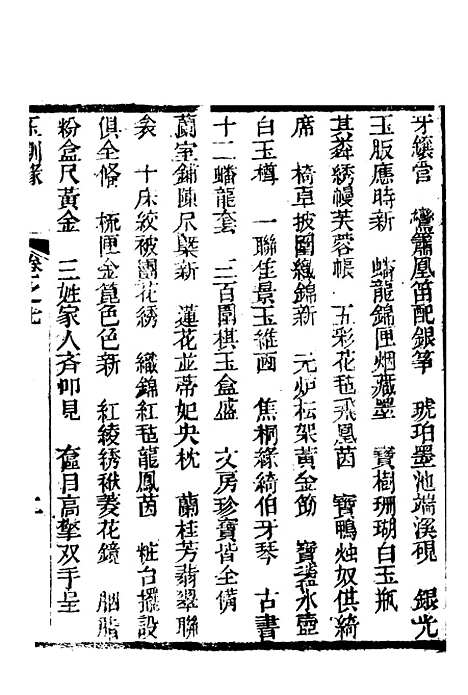 牙籤當 鸞簫鳳笛配銀筝 琥珀墨池端溪硯 銀光
玉版應時新 蟠龍錦匣烟藏墨 寶樹珊瑚白玉瓶
其 綉幔芙蓉帳 五彩花毡飛鳳茵 寶鴨燭奴供綺
席 椅卓披圍織錦新 元炉耘架黃金筯 寶 水壺
白玉樽 一聯佳景玉維画 焦桐絲綺伯牙琴 古書
十二蟠龍套 三百圍棋玉盒盛 文房珍寶皆全俻
蘭室鋪陳尽槩新 蓮花並蒂妃央枕 蘭桂芳翡翠聯
衾 十床紋被團花綉 織錦紅毡龍鳳茵 粧台擺設
俱全俻 梳匣金篦色色新 紅綾綉袱菱花鏡 胭脂
粉盒尺黃金 三姓家人斉叩見 奩目高擎双手呈
玉釧緣 卷之七 二